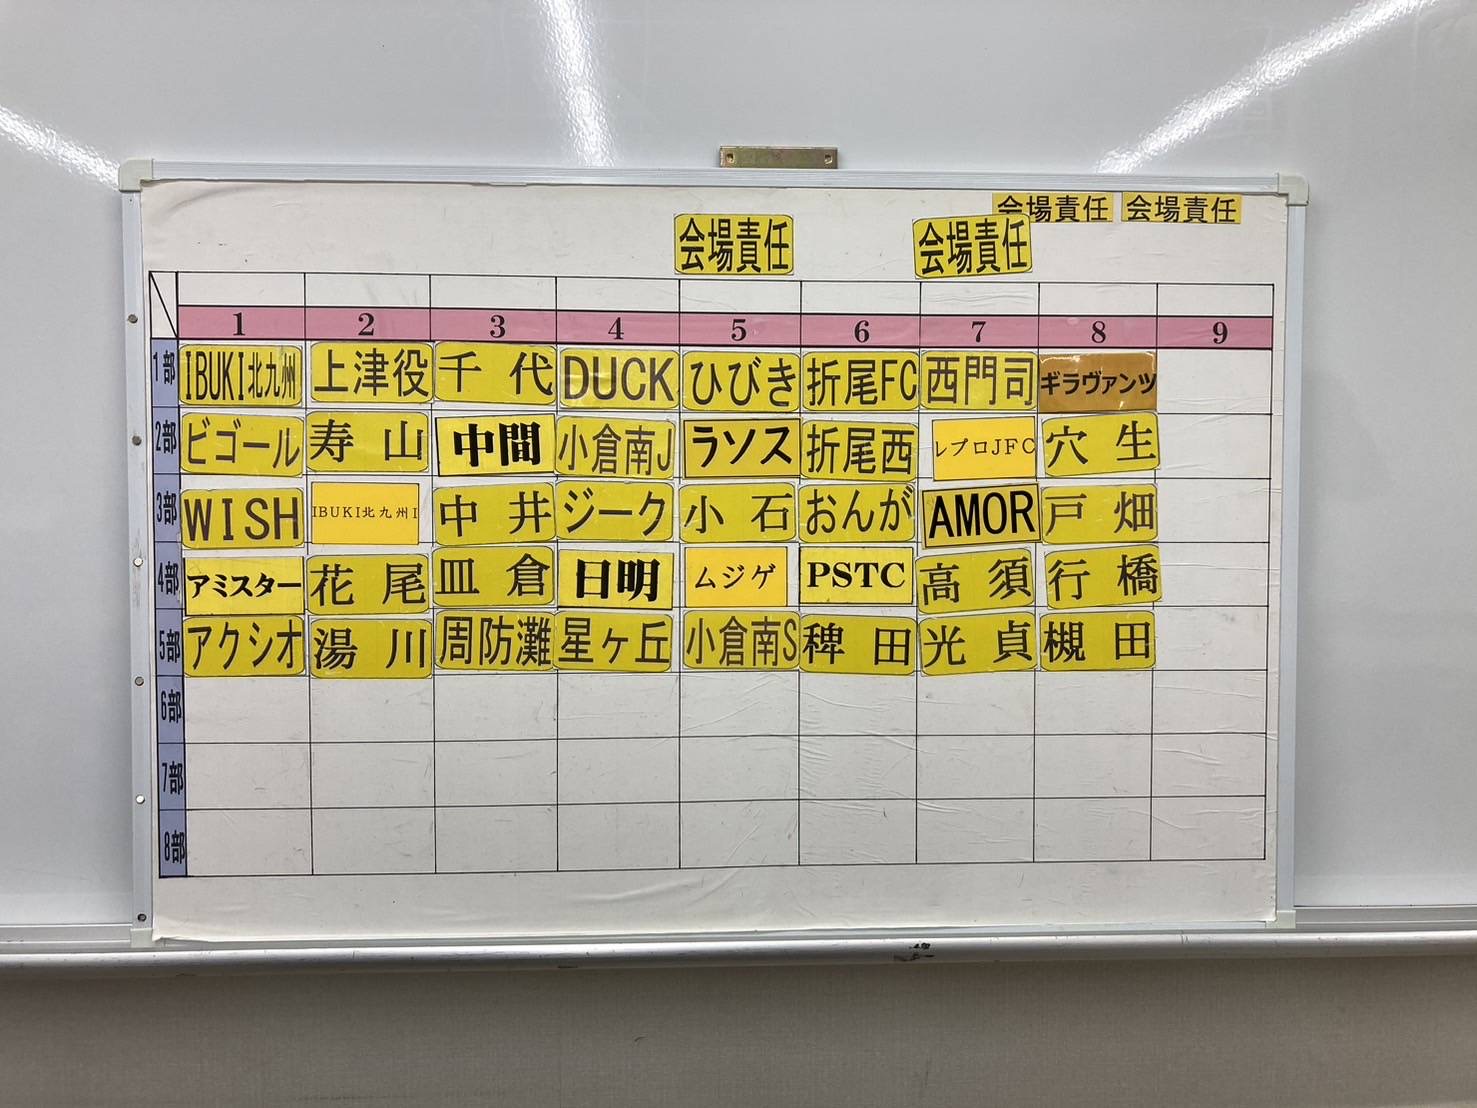 会場責任 会場責任
会場責任 会場責任
1 2 3 4 5 6 7 8 9
1部 IBUKI北九州 上津役 千代 DUCK ひびき 折尾FC 西門司 ギラヴァンツ
2部 ビゴール 寿山 中間 小倉南J ラソス 折尾西 レプロJFC 穴生
3部 WISH IBUKI北九州I 中井 ジーク 小石 おんが AMOR 戸畑
4部 アミスター 花尾 皿倉 日明 ムジゲ PSTC 高須 行橋
5部 アクシオ 湯川 周防灘 星ヶ丘 小倉南S 稗田 光貞 槻田
6部
7部
8部